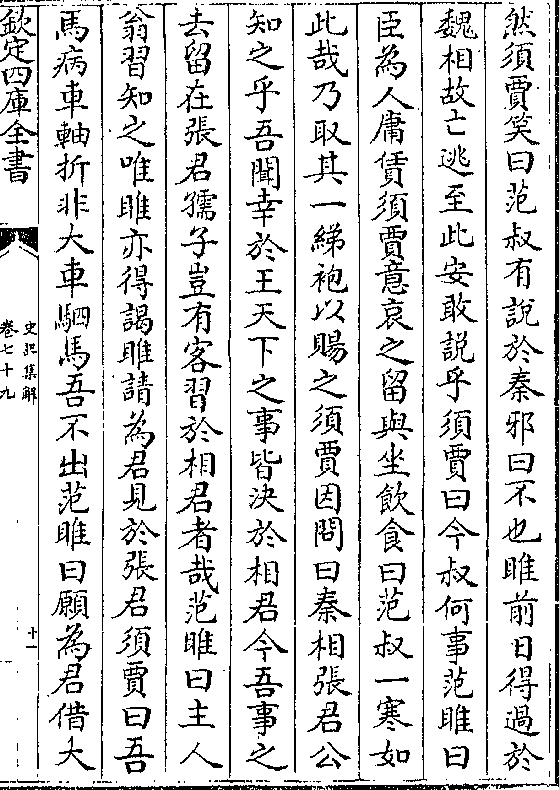 然須賈笑曰范叔有說於秦邪曰不也雎前日得過於
魏相故亡逃至此安敢說乎須賈曰今叔何事范雎曰
臣為人庸賃須賈意哀之留與坐飲食曰范叔一寒如
此哉乃取其一綈袍以賜之須賈因問曰秦相張君公
知之乎吾聞幸於王天下之事皆決於相君今吾事之
去留在張君孺子豈有客習於相君者哉范雎曰主人
翁習知之唯雎亦得謁雎請為君見於張君須賈曰吾
馬病車軸折非大車駟馬吾不出范雎曰願為君借大
欽定四庫全書
史記集解
卷七十九
十一